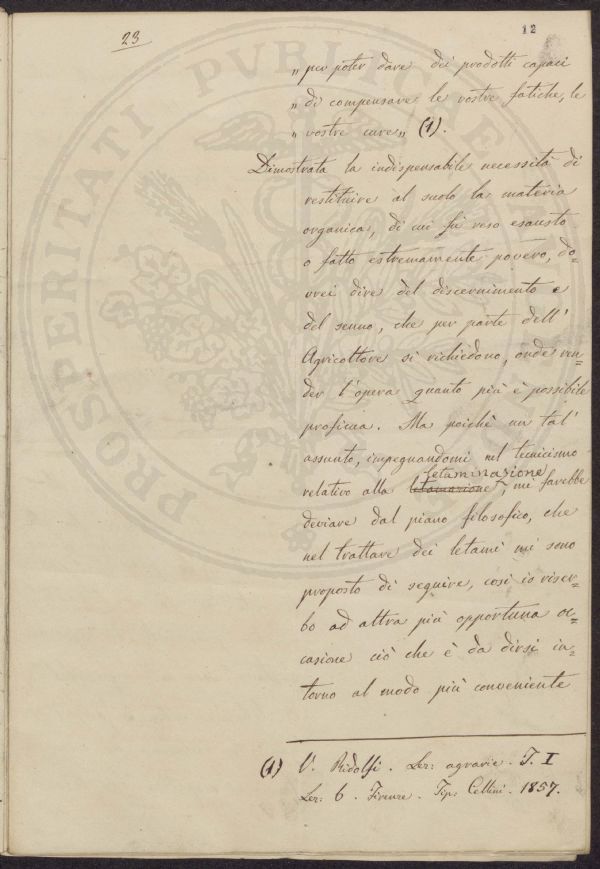 23
12
„ per poter dare dei prodotti capaci
„ di compensare le vostre fatiche, le
„ vostre cure „ (1).
Dimostrata la indispensabile necessità di
restituire al suolo la materia
organica, di cui fù reso esausto
o fatto estremamente povero, do=
vrei dire del discernimento e
del senno, che per parte dell'
Agricoltore si richiedono, onde ren=
der l'opera quanto più è possibile
proficua. Ma poichè un tal'
assunto, impegnandomi nel tecnicismo
letaminazione
relativo alla letamazione, mi farebbe
deviare dal piano filosofico, che
nel trattare dei letami mi sono
proposto di seguire, così io riser=
bo ad altra più opportuna oc=
casione ciò che è da dirsi in=
torno al modo più conveniente
(1) V. Ridolfi. Lez: agrarie. T. I
Lez: 6. Firenze. Tip: Cellini. 1857.
PROSPERITATI PVBLICAE